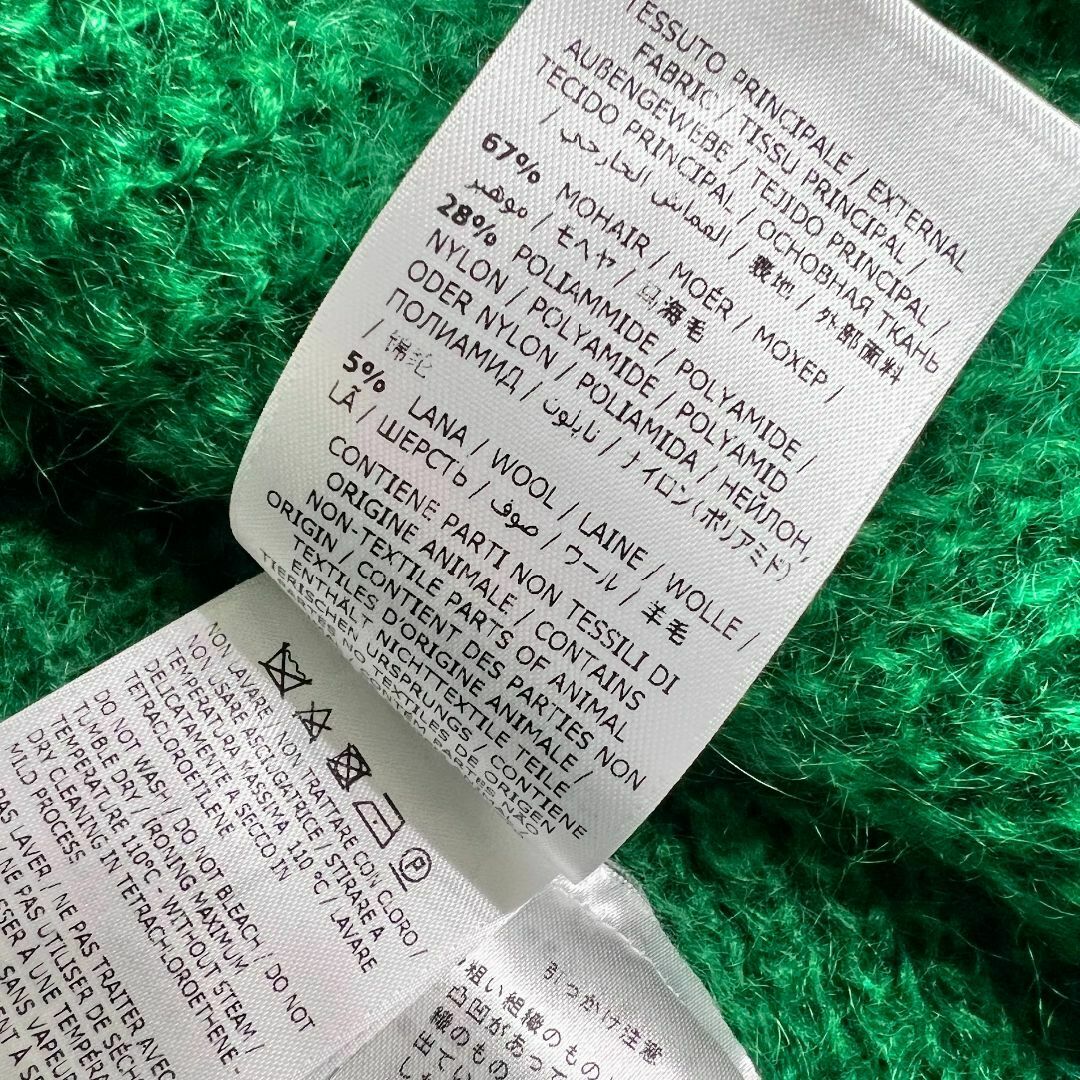 TESSUTO PRINCIPALE / EXTERNAL
FABRIC / TISSU PRINCIPAL /
AUßENGEWEBE / TEJIDO PRINCIPAL /
TECIDO PRINCIPAL / ОСНОВНАЯ ТКАНЬ
/ القماش الخارجي / 表地 / 外部面料
67% MOHAIR / MOÉR / МОХЕР /
موهير / モヘヤ / 马海毛
28% POLIAMMIDE / POLYAMIDE /
NYLON / POLYAMIDE / POLYAMID
ODER NYLON / POLIAMIDA / НЕЙЛОН,
ПОЛИАМИД / نايلون / ナイロン(ポリアミド)
/ 锦纶
5% LANA / WOOL / LAINE / WOLLE /
LÃ / ШЕРСТЬ / صوف / ウール / 羊毛
CONTIENE PARTI NON TESSILI DI
ORIGINE ANIMALE / CONTAINS
NON-TEXTILE PARTS OF ANIMAL
ORIGIN / CONTIENT DES PARTIES NON
TEXTILES D'ORIGINE ANIMALE /
ENTHÄLT NICHTTEXTILE TEILE
TIERISCHEN URSPRUNGS / CONTIENE
PARTES NO TEXTILES DE ORIGEN
PARTES NÃO
P
NON LAVARE / NON TRATTARE CON CLORO /
NON USARE ASCIUGATRICE / STIRARE A
TEMPERATURA MASSIMA 110 °C / LAVARE
DELICATAMENTE A SECCO IN
TETRACLOROETILENE
DO NOT WASH / DO NOT BLEACH / DO NOT
TUMBLE DRY / IRONING MAXIMUM
TEMPERATURE 110ºC - WITHOUT STEAM /
DRY CLEANING IN TETRACHLOROETHENE -
MILD PROCESS
PAS LAVER / NE PAS TRAITER AVEC
NE PAS UTILISER DE SÉCH
SER À UNE TEMPÉRA
SANS VAPEUR
引っかけ注意
粗い組織のもの
凸凹があって
織のもの
出てい